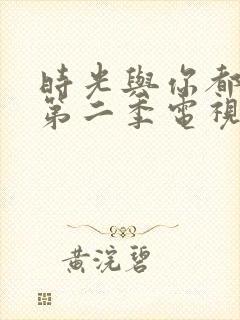 時光與你都
第二季電視
黃浣碧